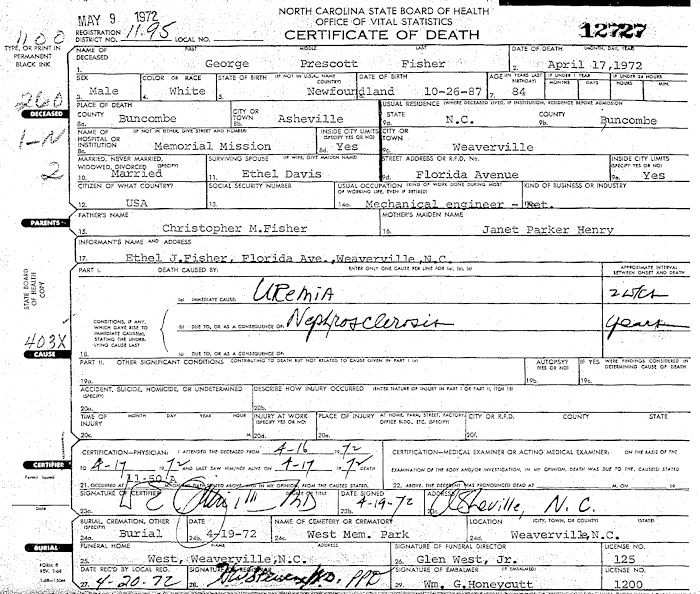 MAY 9 1972
NORTH CAROLINA STATE BOARD OF HEALTH
OFFICE OF VITAL STATISTICS
CERTIFICATE OF DEATH
12727
REGISTRATION DISTRICT NO. 11.95 LOCAL NO.
1100
TYPE, OR PRINT IN PERMANENT BLACK INK
NAME OF DECEASED FIRST MIDDLE LAST DATE OF DEATH (MONTH, DAY, YEAR)
1. George Prescott Fisher 2. April 17,1972
SEX COLOR OR RACE STATE OF BIRTH (IF NOT IN USA, NAME COUNTRY) DATE OF BIRTH AGE (IN YEARS LAST BIRTHDAY) IF UNDER 1 YEAR MONTHS DAYS IF UNDER 24 HOURS HOURS MIN.
3. Male 4. White 5. Newfoundland 6. 10-26-87 7. 84
260
DECEASED
PLACE OF DEATH USUAL RESIDENCE (WHERE DECEASED LIVED, IF INSTITUTION, RESIDENCE BEFORE ADMISSION)
COUNTY CITY OR TOWN STATE COUNTY
8a. Buncombe 8b. Asheville 9a. N.C. 9b. Buncombe
NAME OF HOSPITAL OR INSTITUTION (IF NOT IN EITHER, GIVE STREET AND NUMBER) INSIDE CITY LIMITS (SPECIFY YES OR NO) CITY OR TOWN
8c. Memorial Mission 8d. Yes 9c. Weaverville
1-N
2
MARRIED, NEVER MARRIED, WIDOWED, DIVORCED (SPECIFY) SURVIVING SPOUSE (IF WIFE, GIVE MAIDEN NAME) STREET ADDRESS OR R.F.D. No. INSIDE CITY LIMITS (SPECIFY YES OR NO)
10. Married 11. Ethel Davis 9d. Florida Avenue 9e. Yes
CITIZEN OF WHAT COUNTRY? SOCIAL SECURITY NUMBER USUAL OCCUPATION (KIND OF WORK DONE DURING MOST OF WORKING LIFE, EVEN IF RETIRED) KIND OF BUSINESS OR INDUSTRY
12. USA 13. 14a. Mechanical engineer - Ret.
PARENTS
FATHER'S NAME MOTHER'S MAIDEN NAME
15. Christopher M.Fisher 16. Janet Parker Henry
INFORMANT'S NAME AND ADDRESS
17. Ethel J.Fisher, Florida Ave.,Weaverville,N.C.
STATE BOARD OF HEALTH COPY
PART I. DEATH CAUSED BY: ENTER ONLY ONE CAUSE PER LINE FOR (a), (b), (c) APPROXIMATE INTERVAL BETWEEN ONSET AND DEATH
(a) IMMEDIATE CAUSE Uremia
CONDITIONS, IF ANY, WHICH GAVE RISE TO IMMEDIATE CAUSE(a), STATING THE UNDERLYING CAUSE LAST
(b) DUE TO, OR AS A CONSEQUENCE OF: Nephrosclerosis years
403X
CAUSE
18. (c) DUE TO, OR AS A CONSEQUENCE OF:
PART II. OTHER SIGNIFICANT CONDITIONS CONTRIBUTING TO DEATH BUT NOT RELATED TO CAUSE GIVEN IN PART I (a) AUTOPSY? (YES OR NO) IF YES WERE FINDINGS CONSIDERED IN DETERMINING CAUSE OF DEATH
19a. 19b. 19c.
ACCIDENT, SUICIDE, HOMICIDE, OR UNDETERMINED (SPECIFY) DESCRIBE HOW INJURY OCCURRED (ENTER NATURE OF INJURY IN PART I OR PART II, ITEM 18)
20a. 20b.
TIME OF INJURY MONTH DAY YEAR HOUR INJURY AT WORK (SPECIFY YES OR NO) PLACE OF INJURY AT HOME, FARM, STREET, FACTORY, OFFICE BLDG., ETC. (SPECIFY) CITY OR R.F.D. COUNTY STATE
20c. M 20d. 20e. 20f.
CERTIFICATION—PHYSICIAN: I ATTENDED THE DECEASED FROM 4-16 1972
CERTIFICATION—MEDICAL EXAMINER OR ACTING MEDICAL EXAMINER: ON THE BASIS OF THE
CERTIFIER
TO 4-17 1972 AND LAST SAW HIM/HER ALIVE ON 4-17 1972 DEATH
EXAMINATION OF THE BODY AND/OR INVESTIGATION, IN MY OPINION, DEATH WAS DUE TO THE CAUSE(S) STATED
Permit Issued
21. OCCURRED AT 11-50 A
22. ABOVE. THE DECEDENT WAS PRONOUNCED DEAD AT M, ON 19
SIGNATURE OF CERTIFIER DATE SIGNED ADDRESS
23a. 23b. 4-19-72 23c. Asheville, N. C.
Date
BURIAL, CREMATION, OTHER (SPECIFY) DATE NAME OF CEMETERY OR CREMATORY LOCATION (CITY, TOWN, OR COUNTY) (STATE)
24a. Burial 24b. 4-19-72 24c. West Mem. Park 24d. Weaverville,N.C.
BURIAL
FUNERAL HOME NAME ADDRESS SIGNATURE OF FUNERAL DIRECTOR LICENSE NO.
25. West, Weaverville,N.C. 26. Glen West, Jr. 125
FORM 8
REV. 1-68
DATE REC'D BY LOCAL REG. SIGNATURE OF REGISTRAR SIGNATURE OF EMBALMER (IF EMBALMED) LICENSE NO.
27. 4-20-72 28. 29. Wm. G.Honeycutt 1200